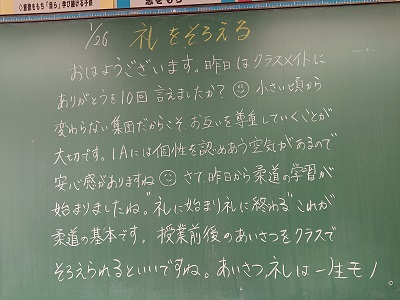 ○意欲をもち「自ら」学び続ける子供
1/26 礼をそろえる
おはようございます。昨日はクラスメイトに
ありがとうを10回言えましたか?☺小さい頃から
変わらない集団だからこそお互いを尊重していくことが
大切です。1Aには個性を認めあう空気があるので
安心感がありますね☺さて、昨日から柔道の学習が
始まりましたね。"礼に始まり礼に終わる"これが
柔道の基本です。授業前後のあいさつをクラスで
そろえられるといいですね。あいさつ、礼は一生モノ。